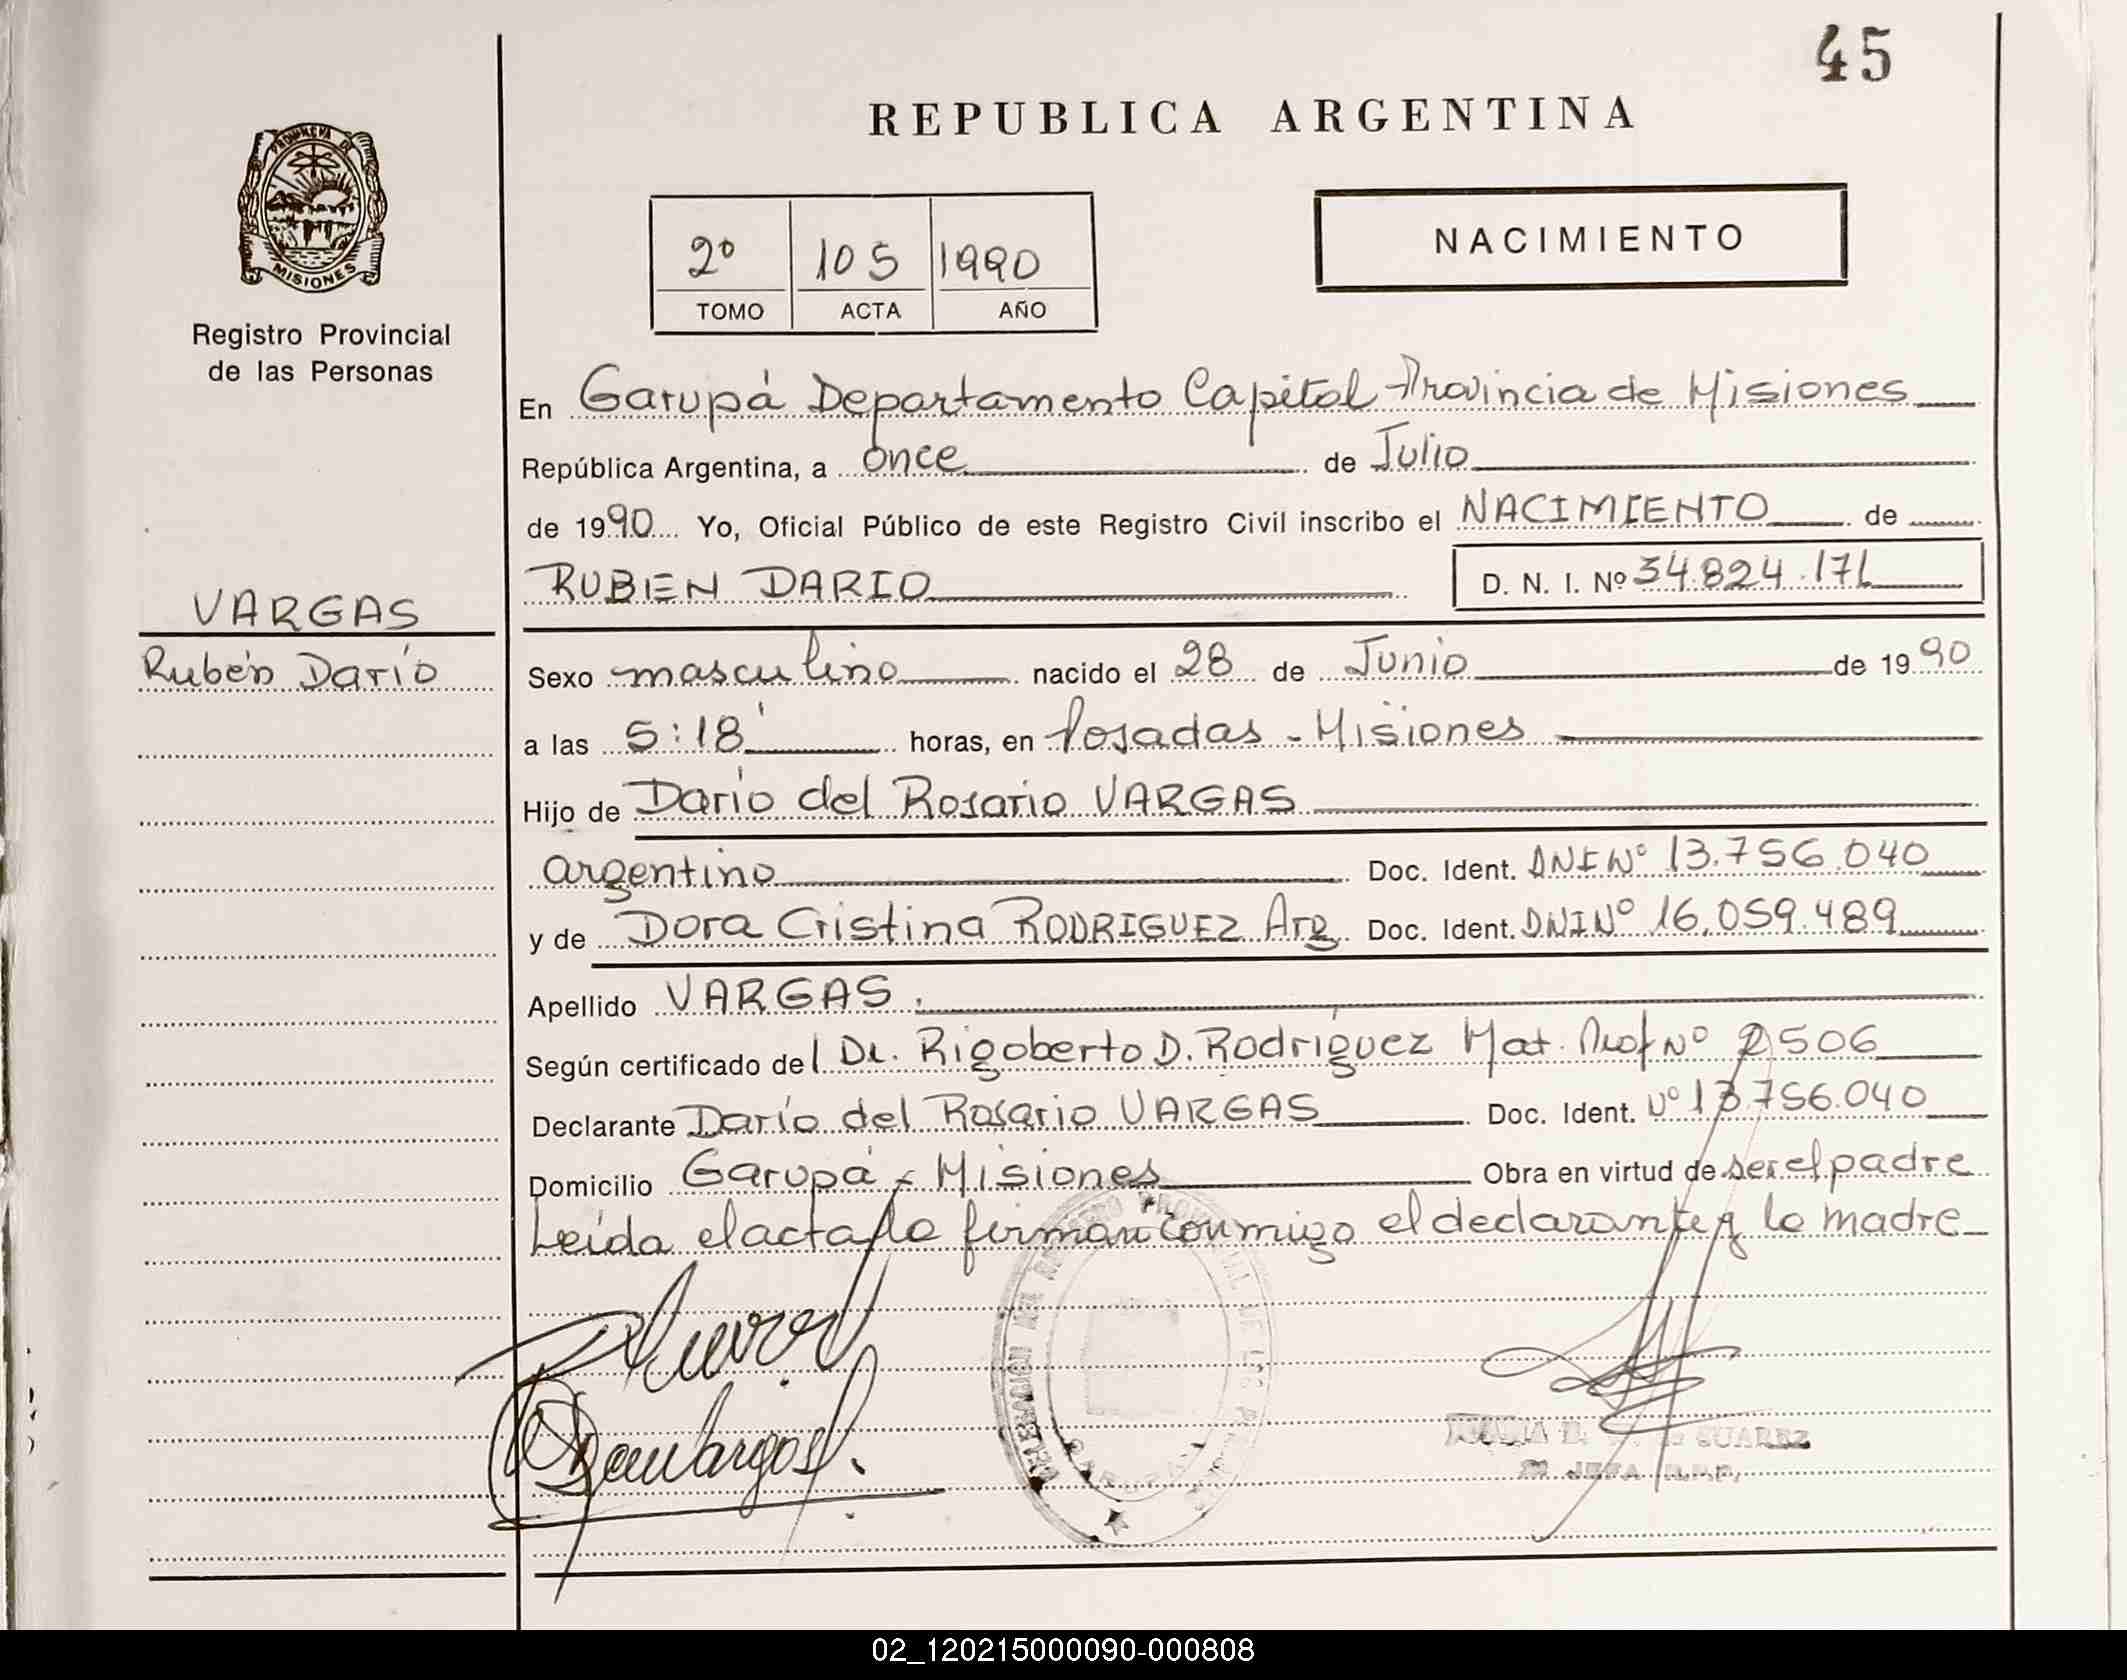 45
REPUBLICA ARGENTINA
PROVINCIA DE
MISIONES
Registro Provincial
de las Personas
2º 105 1990
TOMO ACTA AÑO
NACIMIENTO
En Garupá Departamento Capital Provincia de Misiones
República Argentina, a once de Julio
de 1990 Yo, Oficial Público de este Registro Civil inscribo el NACIMIENTO de
RUBEN DARIO D. N. I. Nº 34.824.171
VARGAS
Rubén Darío
Sexo masculino nacido el 28 de Junio de 1990
a las 5:18' horas, en Posadas - Misiones
Hijo de Darío del Rosario VARGAS
argentino Doc. Ident. DNI Nº 13.756.040
y de Dora Cristina RODRIGUEZ Arg Doc. Ident. DNI Nº 16.059.489
Apellido VARGAS
Según certificado del Dr. Rigoberto D. Rodríguez Mat. Prof Nº 2506
Declarante Darío del Rosario VARGAS Doc. Ident. Nº 13.756.040
Domicilio Garupá - Misiones Obra en virtud de ser el padre
Leída el acta la firman conmigo el declarante y la madre
SUAREZ
JEFA R.P.P.
02_120215000090-000808